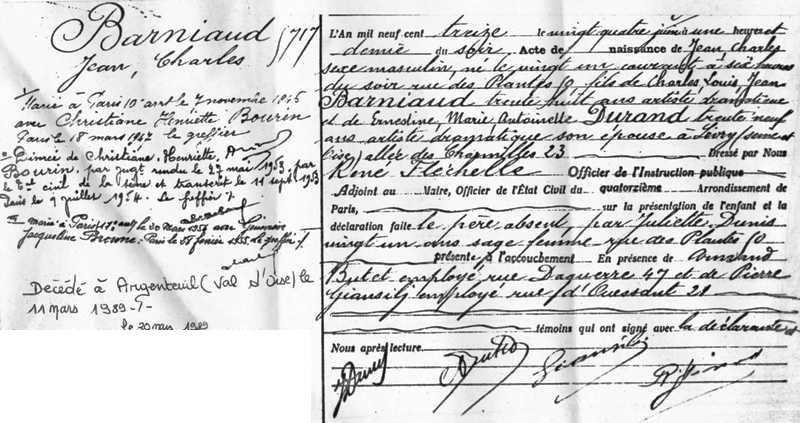 Barniaud
Jean, Charles
717
Marié à Paris 10e arrt le 7 novembre 1946
avec Christiane Henriette Bourin
Paris le 18 mars 1947 le greffier
Divorcé de Christiane, Henriette,
Bourin par jugt rendu le 27 mai 1953 par
le civil de la Seine et transcrit le 11 sept 1953
Paris le 9 juillet 1954. Le greffier
Marié à Paris le 30 mars 1954 avec
Jacqueline Paris le le greffier
Décédé à Argenteuil (Val d'Oise) le
11 mars 1989 -/-
le 20 mars 1989
L'An mil neuf cent treize le vingt quatre juin à une heures et
demie du soir Acte de naissance de Jean, Charles
sexe masculin, né le vingt un courant à six heures
du soir rue des Plantes fils de Charles, Louis, Jean
Barniaud trente huit ans artiste dramatique
et de Ernestine Marie Antoinette Durand trente neuf
ans artiste dramatique son épouse à Livry (Seine et
Oise) allée des Charmilles 23 Dressé par Nous
René Flechelle Officier de l'Instruction publique
Adjoint au Maire, Officier de l'État Civil du quatorzième Arrondissement de
Paris, sur la présentation de l'enfant et la
déclaration faite le père absent, par Juliette Denis
vingt un ans sage femme rue des Plantes
présente à l'accouchement En présence de Armand
Butet employé rue Daguerre 47 et de Pierre
employé rue d'Ouessant 21
témoins qui ont signé avec la déclarante et
Nous après lecture.